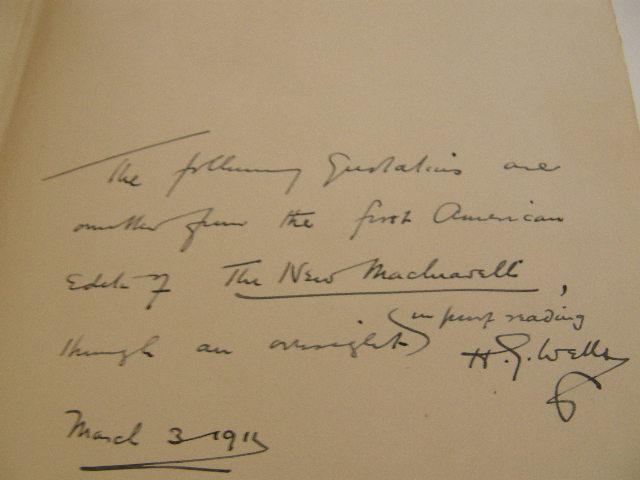 The following Quotations are
omitted from the first American
Edit of The New Machiavelli,
through an oversight in proof reading
H. G. Wells
March 3 1911